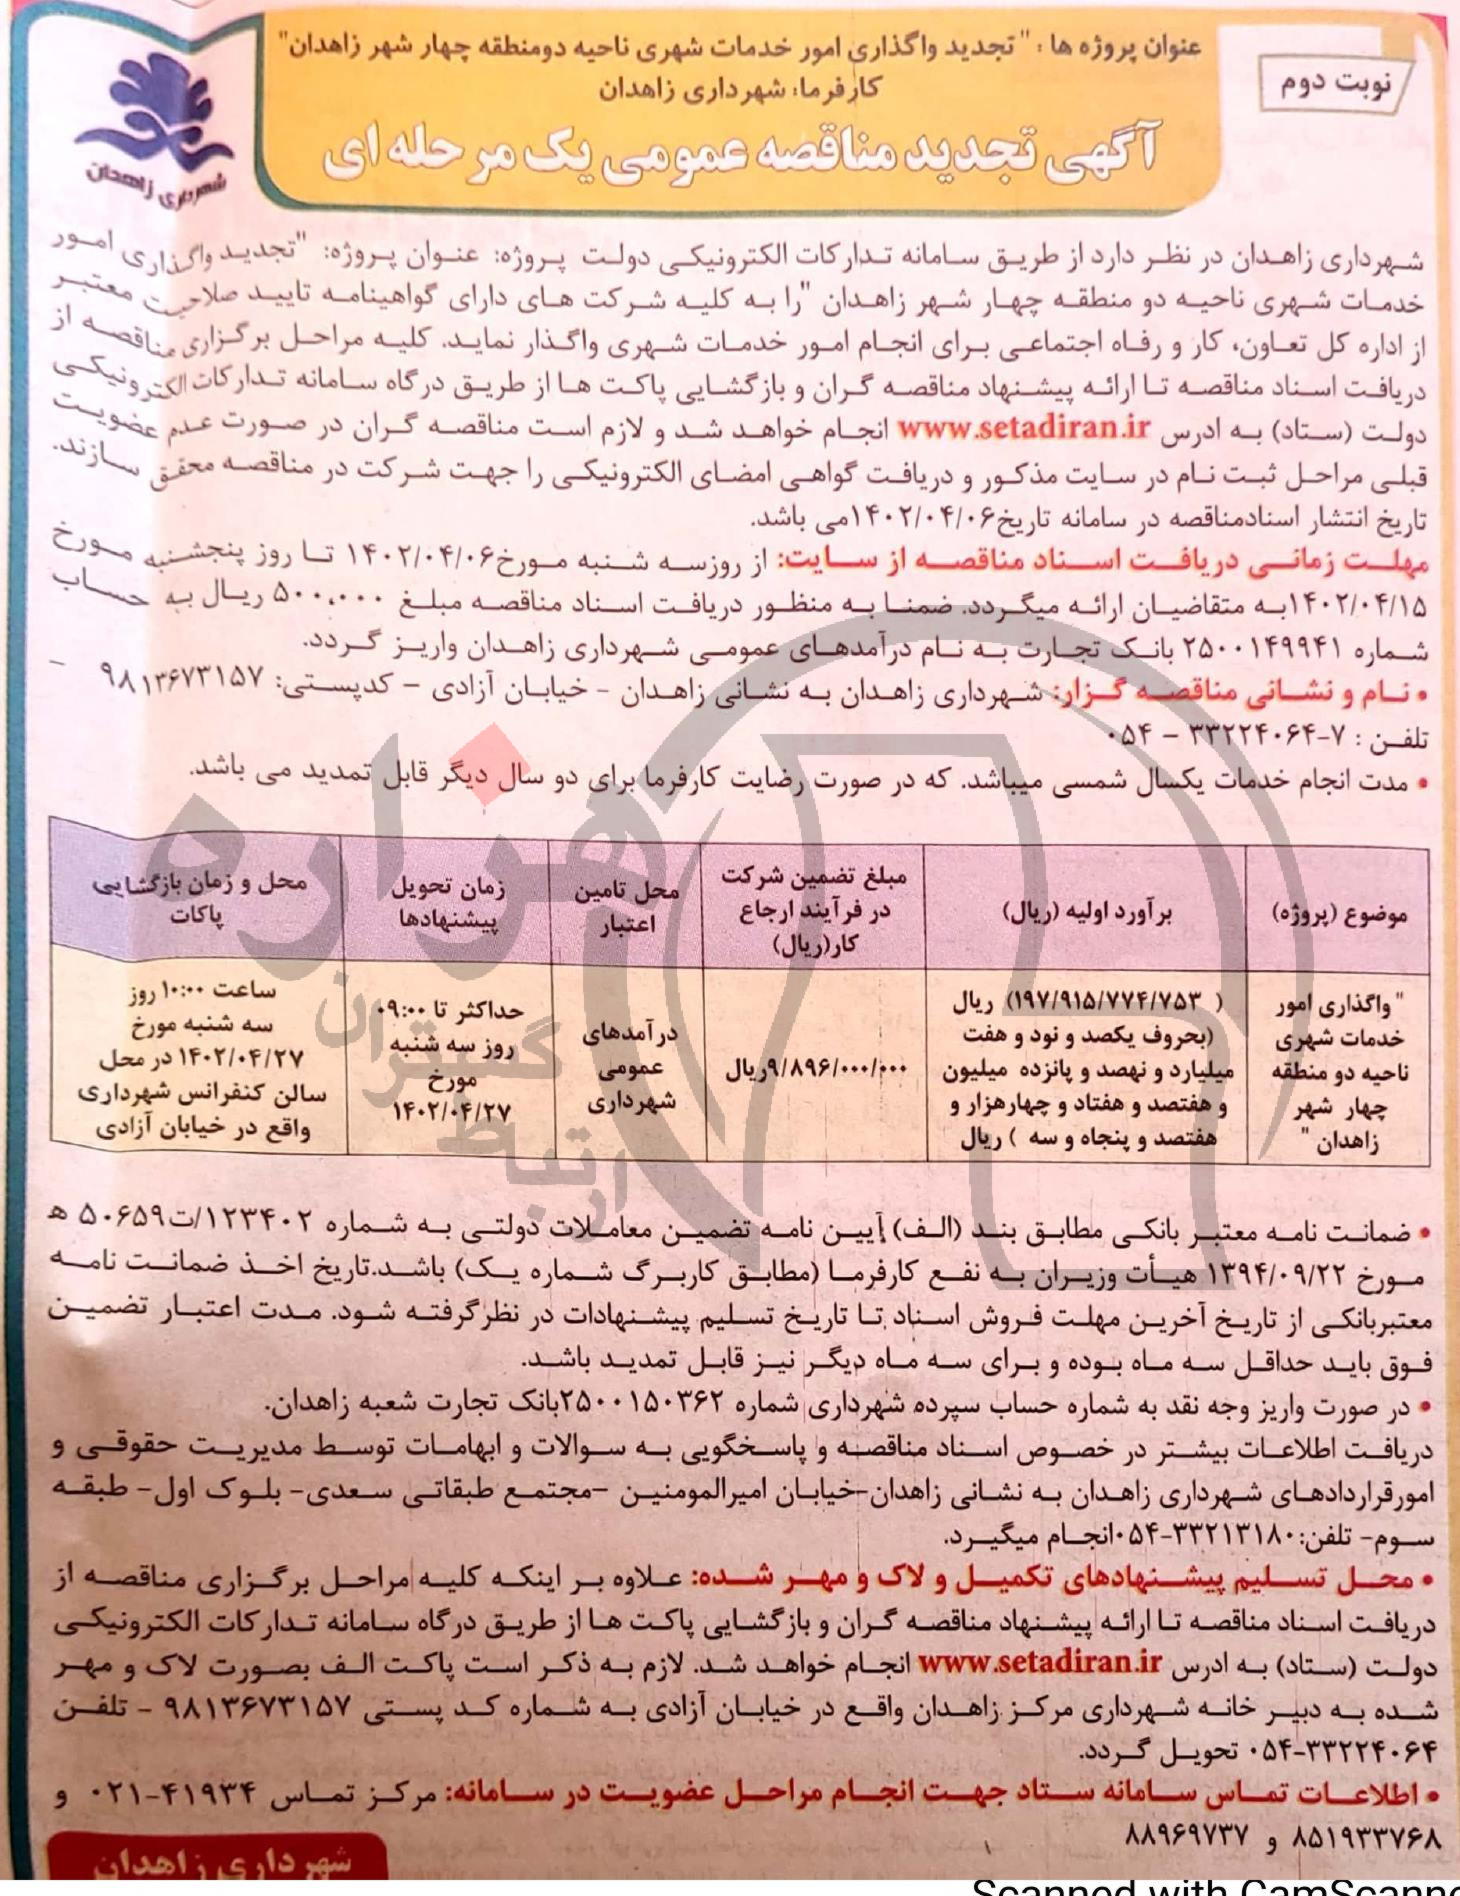 نوبت دوم
عنوان پروژه ها : "تجدید واگذاری امور خدمات شهری ناحیه دومنطقه چهار شهر زاهدان"
کارفرما: شهرداری زاهدان
آگهی تجدید مناقصه عمومی یک مرحله ای
شهرداری زاهدان
شهرداری زاهدان در نظر دارد از طریق سامانه تدارکات الکترونیکی دولت پروژه: عنوان پروژه: "تجدید واگذاری امور
خدمات شهری ناحیه دو منطقه چهار شهر زاهدان "را به کلیه شرکت های دارای گواهینامه تایید صلاحیت معتبر
از اداره کل تعاون، کار و رفاه اجتماعی برای انجام امور خدمات شهری واگذار نماید. کلیه مراحل برگزاری مناقصه از
دریافت اسناد مناقصه تا ارائه پیشنهاد مناقصه گران و بازگشایی پاکت ها از طریق درگاه سامانه تدارکات الکترونیکی
دولت (ستاد) به ادرس www.setadiran.ir انجام خواهد شد و لازم است مناقصه گران در صورت عدم عضویت
قبلی مراحل ثبت نام در سایت مذکور و دریافت گواهی امضای الکترونیکی را جهت شرکت در مناقصه محقق سازند.
تاریخ انتشار اسنادمناقصه در سامانه تاریخ۱۴۰۲/۰۴/۰۶می باشد.
مهلت زمانی دریافت اسناد مناقصه از سایت: از روزسه شنبه مورخ۱۴۰۲/۰۴/۰۶ تا روز پنجشنبه مورخ
۱۴۰۲/۰۴/۱۵به متقاضیان ارائه میگردد. ضمنا به منظور دریافت اسناد مناقصه مبلغ ۵۰۰,۰۰۰ ریال به حساب
شماره ۲۵۰۰۱۴۹۹۴۱ بانک تجارت به نام درآمدهای عمومی شهرداری زاهدان واریز گردد.
• نام و نشانی مناقصه گزار: شهرداری زاهدان به نشانی زاهدان - خیابان آزادی – کدپستی: ۹۸۱۳۶۷۳۱۵۷ -
تلفن : ۷-۳۳۲۲۴۰۶۴ – ۰۵۴
• مدت انجام خدمات یکسال شمسی میباشد. که در صورت رضایت کارفرما برای دو سال دیگر قابل تمدید می باشد.
موضوع (پروژه)
برآورد اولیه (ریال)
مبلغ تضمین شرکت
در فرآیند ارجاع
کار(ریال)
محل تامین
اعتبار
زمان تحویل
پیشنهادها
محل و زمان بازگشایی
پاکات
" واگذاری امور
خدمات شهری
ناحیه دو منطقه
چهار شهر
زاهدان "
( ۱۹۷/۹۱۵/۷۷۴/۷۵۳) ریال
(بحروف یکصد و نود و هفت
میلیارد و نهصد و پانزده میلیون
و هفتصد و هفتاد و چهارهزار و
هفتصد و پنجاه و سه ) ریال
۹/۸۹۶/۰۰۰/۰۰۰ریال
درآمدهای
عمومی
شهرداری
حداکثر تا ۰۹:۰۰
روز سه شنبه
مورخ
۱۴۰۲/۰۴/۲۷
ساعت ۱۰:۰۰ روز
سه شنبه مورخ
۱۴۰۲/۰۴/۲۷ در محل
سالن کنفرانس شهرداری
واقع در خیابان آزادی
هزاره
گستران
ارتباط
• ضمانت نامه معتبر بانکی مطابق بند (الف) آیین نامه تضمین معاملات دولتی به شماره ۱۲۳۴۰۲/ت۵۰۶۵۹ ه
مورخ ۱۳۹۴/۰۹/۲۲ هیأت وزیران به نفع کارفرما (مطابق کاربرگ شماره یک) باشد.تاریخ اخذ ضمانت نامه
معتبربانکی از تاریخ آخرین مهلت فروش اسناد تا تاریخ تسلیم پیشنهادات در نظرگرفته شود. مدت اعتبار تضمین
فوق باید حداقل سه ماه بوده و برای سه ماه دیگر نیز قابل تمدید باشد.
• در صورت واریز وجه نقد به شماره حساب سپرده شهرداری شماره ۲۵۰۰۱۵۰۳۶۲بانک تجارت شعبه زاهدان.
دریافت اطلاعات بیشتر در خصوص اسناد مناقصه و پاسخگویی به سوالات و ابهامات توسط مدیریت حقوقی و
امورقراردادهای شهرداری زاهدان به نشانی زاهدان-خیابان امیرالمومنین -مجتمع طبقاتی سعدی- بلوک اول- طبقه
سوم- تلفن:۳۳۲۱۳۱۸۰-۰۵۴انجام میگیرد.
• محل تسلیم پیشنهادهای تکمیل و لاک و مهر شده: علاوه بر اینکه کلیه مراحل برگزاری مناقصه از
دریافت اسناد مناقصه تا ارائه پیشنهاد مناقصه گران و بازگشایی پاکت ها از طریق درگاه سامانه تدارکات الکترونیکی
دولت (ستاد) به ادرس www.setadiran.ir انجام خواهد شد. لازم به ذکر است پاکت الف بصورت لاک و مهر
شده به دبیر خانه شهرداری مرکز زاهدان واقع در خیابان آزادی به شماره کد پستی ۹۸۱۳۶۷۳۱۵۷ - تلفن
۰۵۴-۳۳۲۲۴۰۶۴ تحویل گردد.
• اطلاعات تماس سامانه ستاد جهت انجام مراحل عضویت در سامانه: مرکز تماس ۴۱۹۳۴-۰۲۱ و
۸۵۱۹۳۳۷۶۸ و ۸۸۹۶۹۷۳۷
شهرداری زاهدان
Scanned with CamScanne